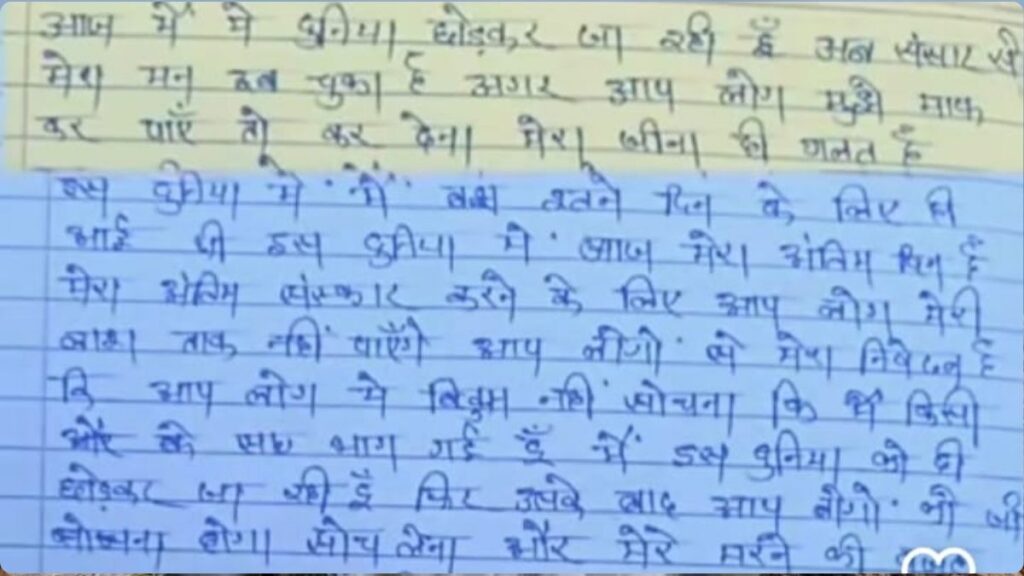 आज में मे दुनिया छोड़कर जा रही हूँ अब संसार से
मेरा मन ऊब चुका है अगर आप लोग मुझे माफ
कर पाएँ तो कर देना मेरा जीना ही गलत है
इस दुनिया मे में बस इतने दिन के लिए ही
आई थी इस दुनिया मे आज मेरा अंतिम दिन है
मेरा अंतिम संस्कार करने के लिए आप लोग मेरी
लाश ताक नहीं पाएँगे आप लोगो से मेरा निवेदन है
कि आप लोग ये नहीं सोचना कि में किसी
और के साथ भाग गई हूँ में इस दुनिया को ही
छोड़कर जा रही हूँ फिर उसके बाद आप लोगो को जो
सोचना होगा सोच लेना और मेरे मरने की